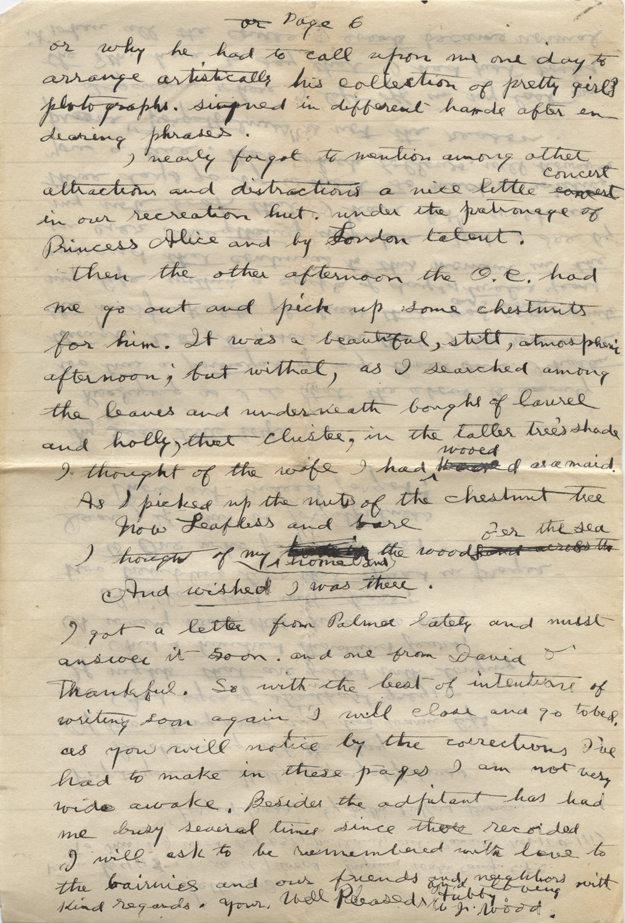 or Page 6
or why he had to call upon me one day to
arrange artistically his collection of pretty girls
photographs. signed in different hands after en
dearing phrases.
I nearly forgot to mention among other
attractions and distractions a nice little concert concert
in our recreation hut. under the patronage of
Princess Alice and by London talent.
then the other afternoon the O.C. had
me go out and pick up some chestnuts
for him. It was a beautiful, still, atmospheric
afternoon; but withal, as I searched among
the leaves and underneath boughs of laurel
and holly, that cluster, in the taller tree's shade
I thought of the wife I had wooed as a maid.
As I picked up the nuts of the chestnut tree
Now Leafless and bare
I thought of my home and the woods o'er the sea and across the
And wished I was there.
I got a letter from Palmer lately and must
answer it soon. and one from David
thankful. So with the best of intentions of
writing soon again I will close and go to bed.
as you will notice by the corrections I've
had to make in these pages I am not very
wide awake. Besides the adjutant has had
me busy several times since
I will ask to be remembered with love to
the bairnies and our friends and neighbors with
kind regards. your Well Pleased and
Hubby
W Jr. Wood.